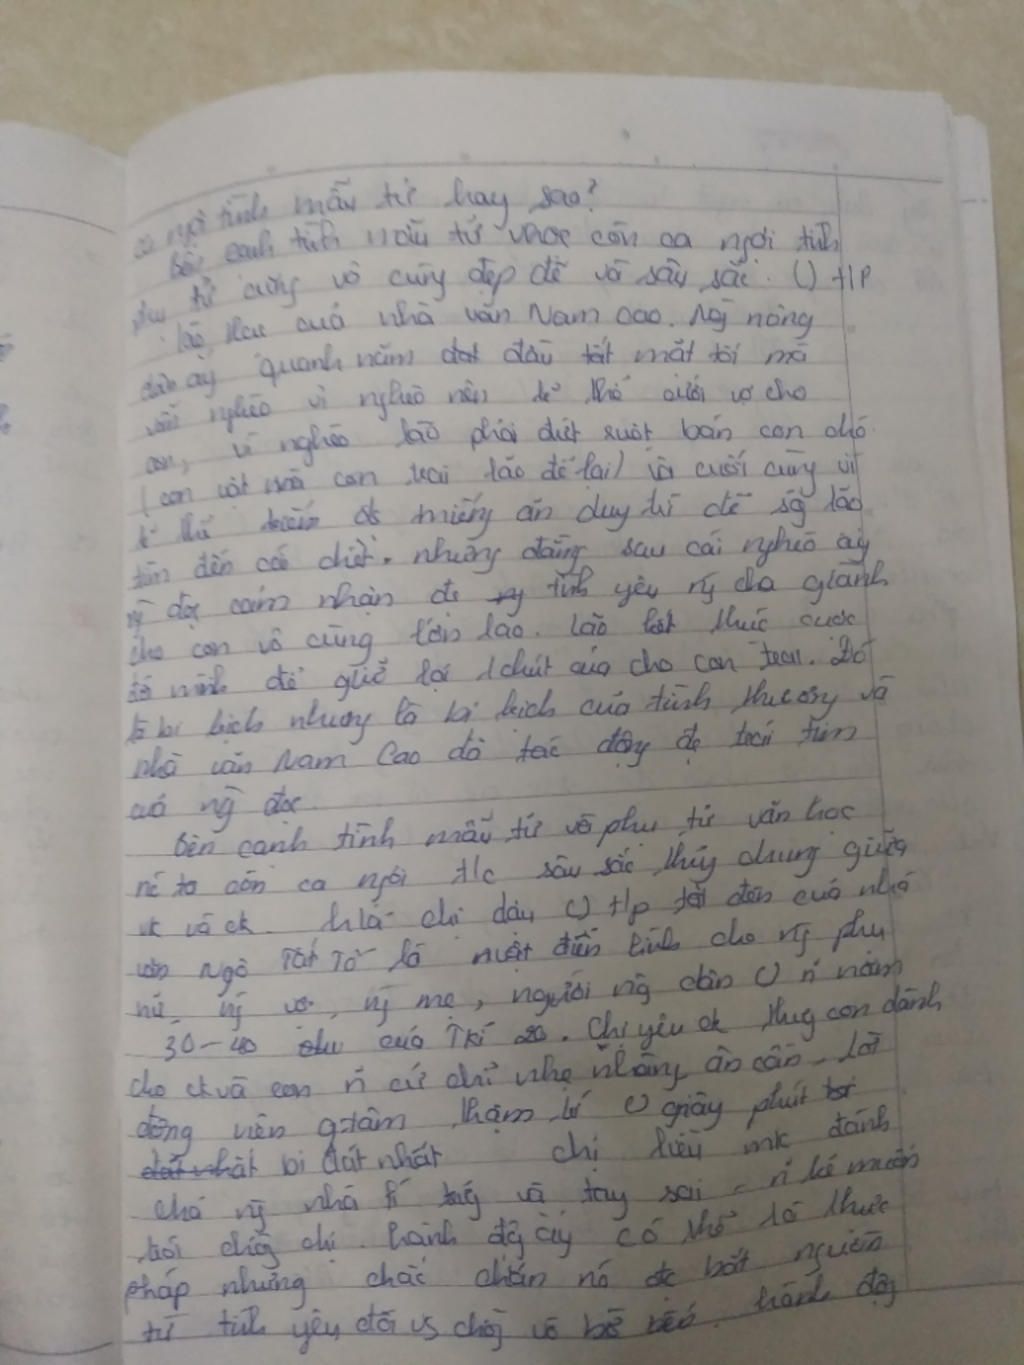 ca ngợi tình mẫu tử hay sao?
Bên cạnh tình mẫu tử VHọc còn ca ngơi tình
phụ tử cũng vô cùng đẹp đẽ và sâu sắc. () t/p
lão Hạc của nhà văn Nam Cao. Ng nông
dân ấy quanh năm đầu tắt mặt tối mà
vẫn nghèo vì nghèo nên k thể cưới vợ cho
con, vì nghèo lão phải dứt ruột bán con chó
(con vật mà con trai lão để lại) và cuối cùng vì
k thể miếng ăn duy trì để sg lão
tìm đến cái chết. nhưng đằng sau cái nghèo ấy
ng đọc cảm nhận đc tình yêu ng cha giành
cho con vô cùng lớn lao. Lão kết thúc cuộc
mình để giữ lại 1 chút của cho con trai. Đó
là bi kịch nhưng là bi kịch của tình thương và
nhà văn Nam Cao đã tác động đc trái tim
của ng đọc.
Bên cạnh tình mẫu tử và phụ tử văn học
ca ngợi t/c sâu sắc thủy chung giữa
vk và ck. chị dậu () t/p tắt đèn của nhà
văn Ngô Tất Tố là một điển hình cho ng phụ
nữ, ng vợ, ng mẹ, người ng dân () n năm
30-40 của TKỉ 20. Chị yêu ck thg con dành
cho ck và con n cử chỉ nhẹ nhàng ân cần, lời
động viên q.tâm, thậm trí () giây phút
bi đát nhất chị liều mk đánh
ng nhà lí trưởng và tay sai, n kẻ muốn
trói chồng chị. hành độg ấy có thể là thức
pháp nhưng chắc chắn nó đc bắt nguồn
từ tình yêu đối vs chồng vô bờ bến. hành độg